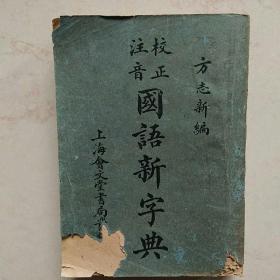 方志新編
校正
注音
國語新字典
上海會文堂書局